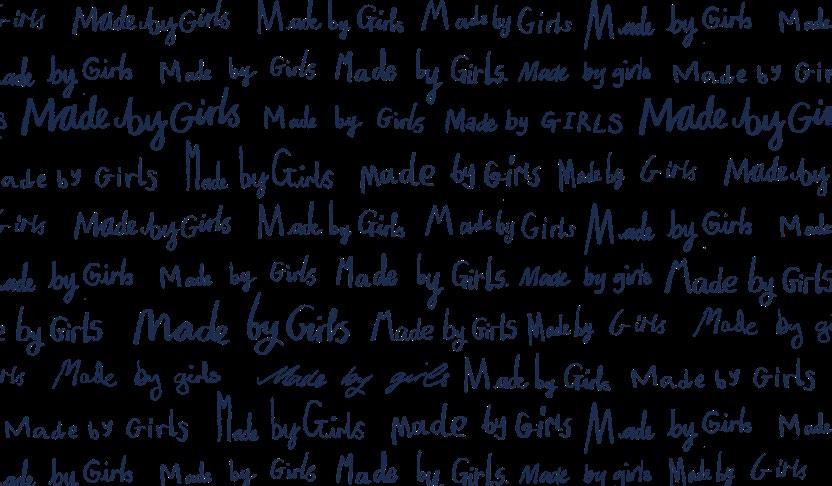 Girls Made by Girls Made by Girls Made by Girls Made by Girls Made
Made by Girls Made by Girls Made by Girls. Made by girls Made by Girls
Made by Girls Made by Girls Made by GIRLS Made by Girls
Made by Girls Made by Girls Made by Girls Made by Girls Made by
Girls Made by Girls Made by Girls Made by Girls Made by Girls Made
Made by Girls Made by Girls Made by Girls. Made by girls Made by Girls
by Girls Made by Girls Made by Girls Made by Girls Made by
Made by girls Made by girls Made by Girls Made by Girls
Made by Girls Made by Girls Made by Girls Made by Girls Made
Made by Girls Made by Girls Made by Girls. Made by girls Made by Girls